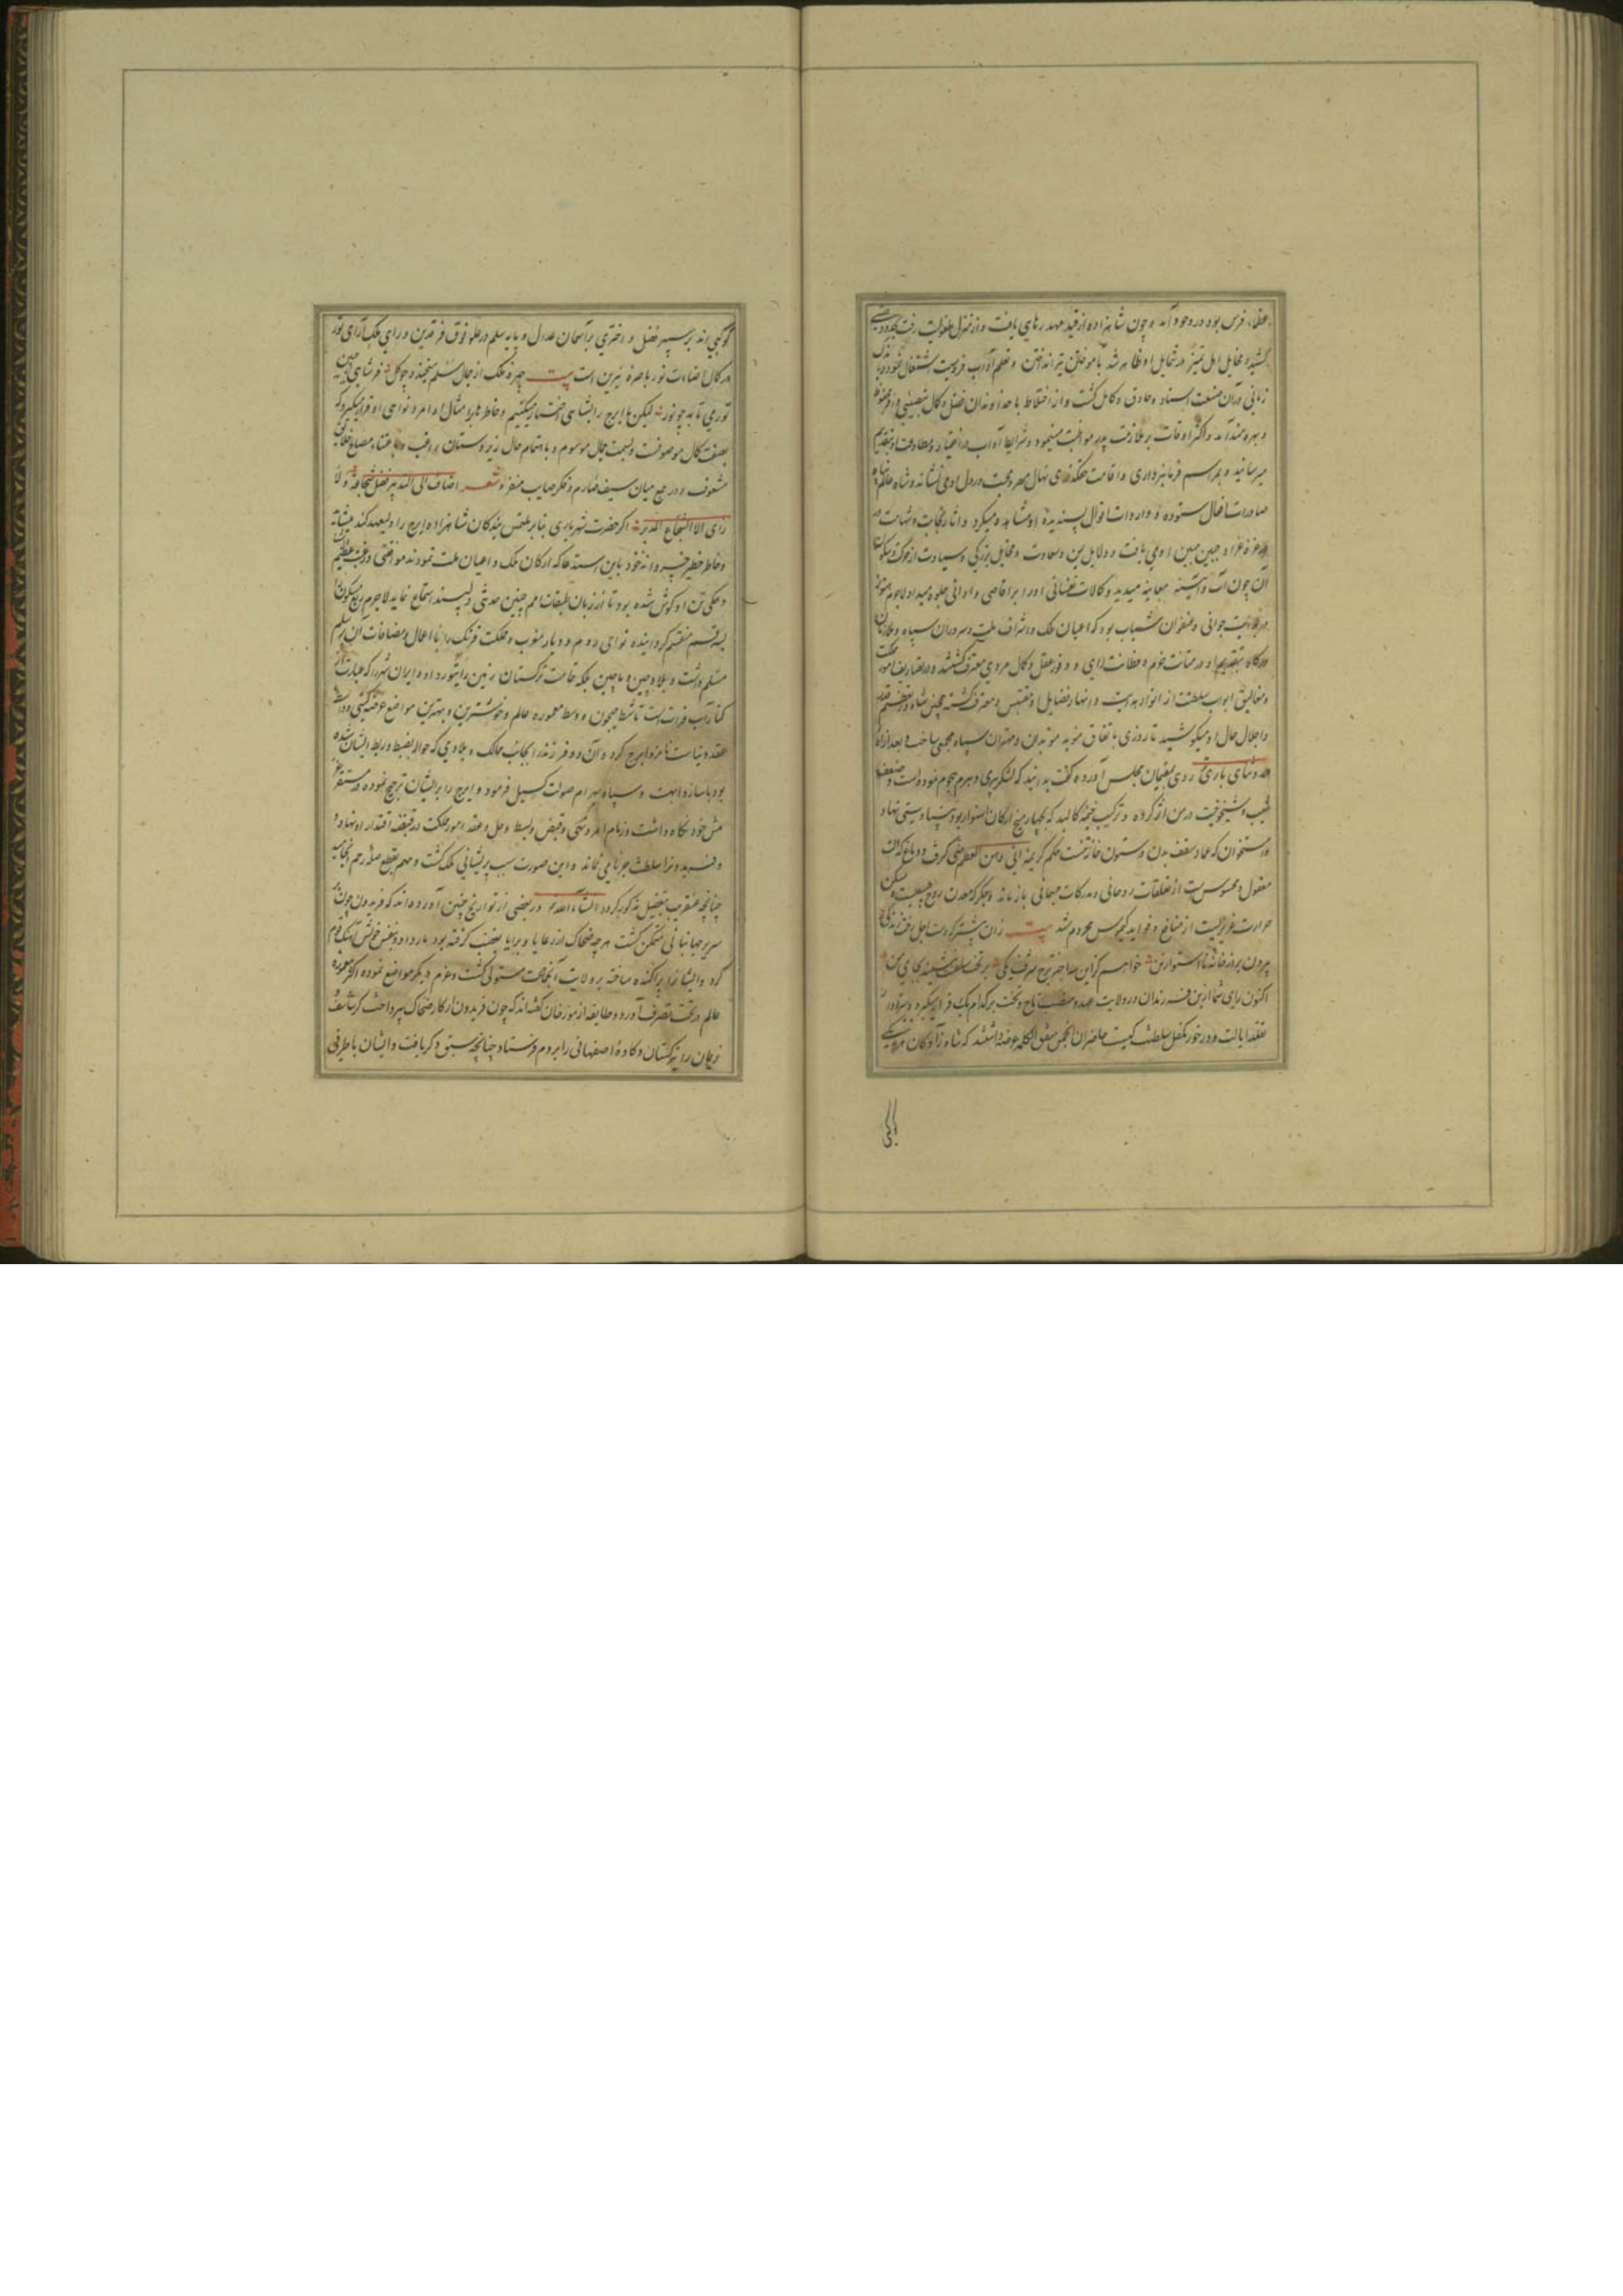 عظماء فرس بود در وجود آمد و چون شاهزاده از قید مهد رهایی یافت و از منزل طفولیت رخت بحدود صبی
کشید و مخایل اهل تمیز در شمایل او ظاهر شد بآموختن تیر انداختن و تعلم آداب فروسیت اشتغال نموده باندک
زمانی در آن صنعت استاد و حاذق و کامل گشت و از اختلاط با خداوندان فضل و کمال بنصیبی وافر محظوظ
و بهره‌مند آمد و اکثر اوقات بر ملازمت پدر مواظبت مینمود و شرایط آداب در انقیاد و مطاوعت بتقدیم
میرسانید و بمراسم فرمانبرداری و اقامت خدمتکاری نهال مهر و محبت در دل او می نشاند و شاه عالم پناه
صادرات افعال ستوده و واردات اقوال پسندیده او مشاهده میکرد و آثار نجابت و شهامت در
غره غرا و جبین مبین او می یافت و دلایل یمن و سعادت و مخایل بزرگی و سیادت از حرکت و سکون
آن چون آب و آینه معاینه میدید و کمالات نفسانی او را بر اقاصی و ادانی جلوه میداد لاجرم هنوز
در بدایت جوانی و عنفوان شباب بود که اعیان ملک و اشراف ملت و سروران سپاه و ملازمان
درگاه بتقدیم او در متانت حزم و فطانت رای و وفور عقل و کمال مردی معترف گشتند و در مضایق امور مملکت
و مغالیق ابواب سلطنت از انوار هدایت و انهار فضایل او مقتبس و مغترف گشته همچنین شاه در تعظیم قدر
و اجلال حال او میکوشید تا روزی باتفاق موبد موبدان و مهتران سپاه مجمعی ساخت و بعد از اداء
حمد و ثنای باری روی بمقیمان مجلس آورده گفت بدانید که لشکر پیری و هرم هجوم نموده است و ضعف
شیب و شیخوخیت در من اثر کرده و ترکیب خیمه کالبد که بچهار میخ ارکان استوار بود بنیاد سستی نهاد
و استخوان که عماد سقف بدن و ستون خانه تنست حکم کریمه انی وهن العظم منی گرفت و دماغ که آلت
معقول و محسوس است از تعلقات روحانی و مدرکات جسمانی باز ماند و جگر که معدن روح طبیعیست و مسکن
حرارت غریزیست از منافع و فواید کیموس محروم شد بیت زان پیشتر که دست اجل رخت زندگی
بیرون برد ز خانه نااستوار من خواهم کزین سه اختر برج شرف یکی بر تخت سلطنت بنشیند بجای من
اکنون رای شما ازین فرزندان در ولایت عهد و منصب تاج و تخت بر کدام یک قرار میگیرد و سزاوار
تقلد ایالت و درخور تکفل سلطنت کیست حاضران انجمن متفق الکلمه عرضه داشتند که شاهزادگان هر یکی
کوکبی
کوکبی‌اند بر سپهر فضل و اختری بر آسمان عدل و پایه سلم در علو فوق فرقدین و رای ملک آرای تور
در کمال اضاءت نور باصره نیرین است بیت چهره ملک از جمال سلم بخندد چو گل فر شاهی از جبین
تور می تابد چو نور لیکن ما ایرج را بشاهی اختیار میکنیم و خاطر ما بر امتثال اوامر و نواهی او قرار میگیرد که
بصفت کمال موصوفست و بسمت جمال موسوم و باهتمام حال زیردستان راغب و باعتناء مصالح خلایق
مشعوف و در جمع میان سیف صارم و فکر صایب متفرد شعر اضاف الی التدبیر فضل شجاعة ولا
رای الا الشجاع المدبر اگر حضرت شهریاری بنابر ملتمس بندگان شاهزاده ایرج را ولیعهد کند
و خاطر خطیر خسروانه خود باین استدعا که ارکان ملک و اعیان ملت نمودند موافقتی و رغبت عظیم
و همگی تن او گوش شده بود تا از زبان طبقات امم چنین حدیثی دلپسند استماع نماید لاجرم ربع مسکون را
بسه قسم منقسم گردانیده نواحی روم و دیار مغرب و مملکت فرنگ را با اعمال و مضافات آن بر سلم
مسلم داشت و بلاد چین و ماچین بلکه تمامت ترکستان زمین را بتور داد و ایران شهر را که عبارت از
کنار آب فراتست تا شط جیحون و وسط معموره عالم و خوشترین و بهترین مواضع عرصه گیتی و واسطه
عقد دنیاست نامزد ایرج کرد و آن دو فرزند را بجانب ممالک و بلادی که حواله بضبط و ربط ایشان شده
بود با ساز و اهبت و سپاه بهرام صولت گسیل فرمود و ایرج را بر ایشان ترجیح نموده در مستقر عز
پیش خود نگاه داشت و زمام امر و نهی و قبض و بسط و حل و عقد امور مملکت در قبضه اقتدار او نهاد و
فریدونرا سلطنت جز نامی نماند و این صورت سبب پریشانی ملک گشت و مهم بقطع صله رحم انجامید
چنانچه عنقریب بتفصیل مذکور گردد انشاء الله تعالی و در بعضی از تواریخ چنین آورده‌اند که فریدون چون بر
سریر جهانبانی متمکن گشت هر چه ضحاک از رعایا و برایا بغصب گرفته بود باز داد و بنفس خویش آهنگ قوم
کرد و ایشانرا پراکنده ساخته بر ولایت آنجماعت مستولی گشت و عزم دیگر مواضع نموده اکثر معموره
عالم در تحت تصرف آورد و طایفه از مورخان گفته‌اند که چون فریدون از کار ضحاک بپرداخت گرشاسف و
نریمان را بترکستان و کاوه اصفهانی را بروم فرستاد چنانچه سبق ذکر یافت و ایشان باطرفی